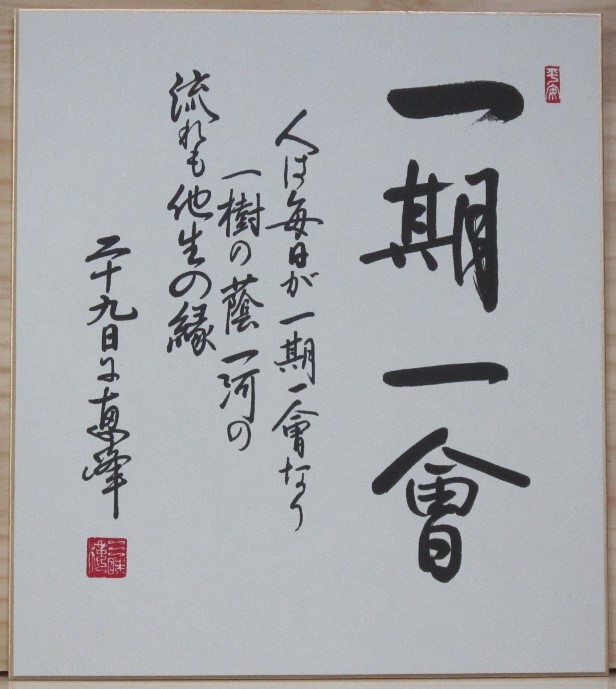 一期一會
人は毎日が一期一會なり
一樹の蔭一河の
流れも他生の縁
二十九日に恵峰